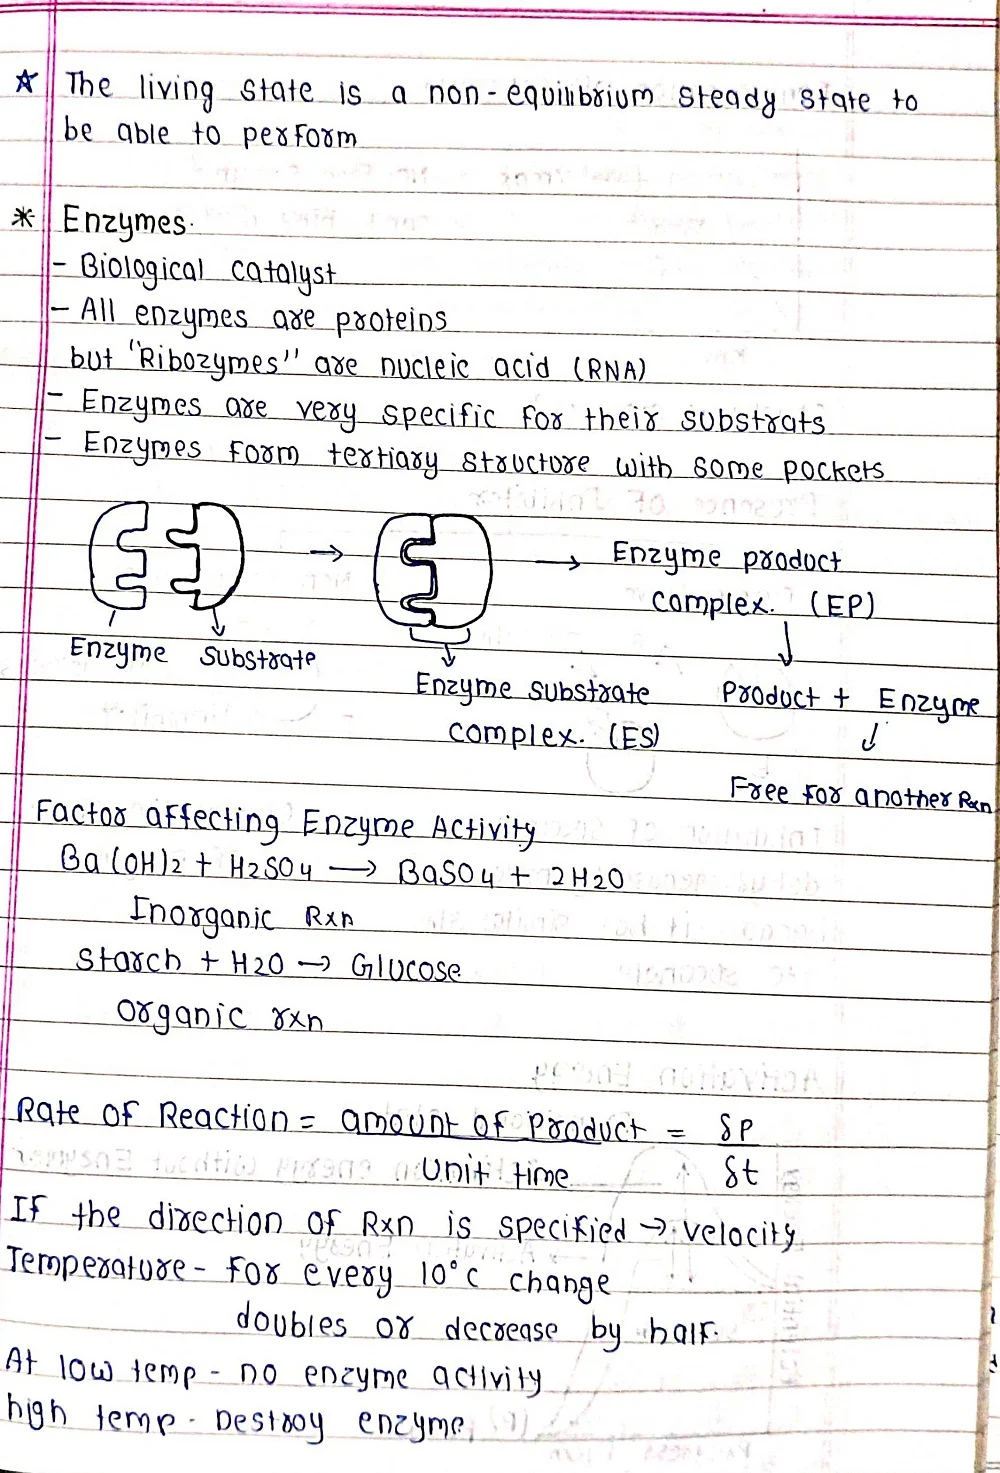 ☆ The living state is a non-equilibrium steady state to
be able to perform
* Enzymes.
- Biological catalyst
- All enzymes are proteins
but "Ribozymes" are nucleic acid (RNA)
- Enzymes are very specific for their substrats
- Enzymes form tertiary structure with some pockets
→ → Enzyme product
complex. (EP)
Enzyme substrate
Enzyme substrate
complex. (ES)
Product + Enzyme
Free for another Rxn
Factor affecting Enzyme Activity
Ba(OH)2 + H2SO4 → BaSO4 + 2H2O
Inorganic Rxn
Starch + H2O → Glucose
organic rxn
Rate of Reaction = amount of product = δP
unit time δt
If the direction of Rxn is specified → velocity
Temperature - For every 10°C change
doubles or decrease by half.
At low temp - no enzyme activity
high temp - Destroy enzyme